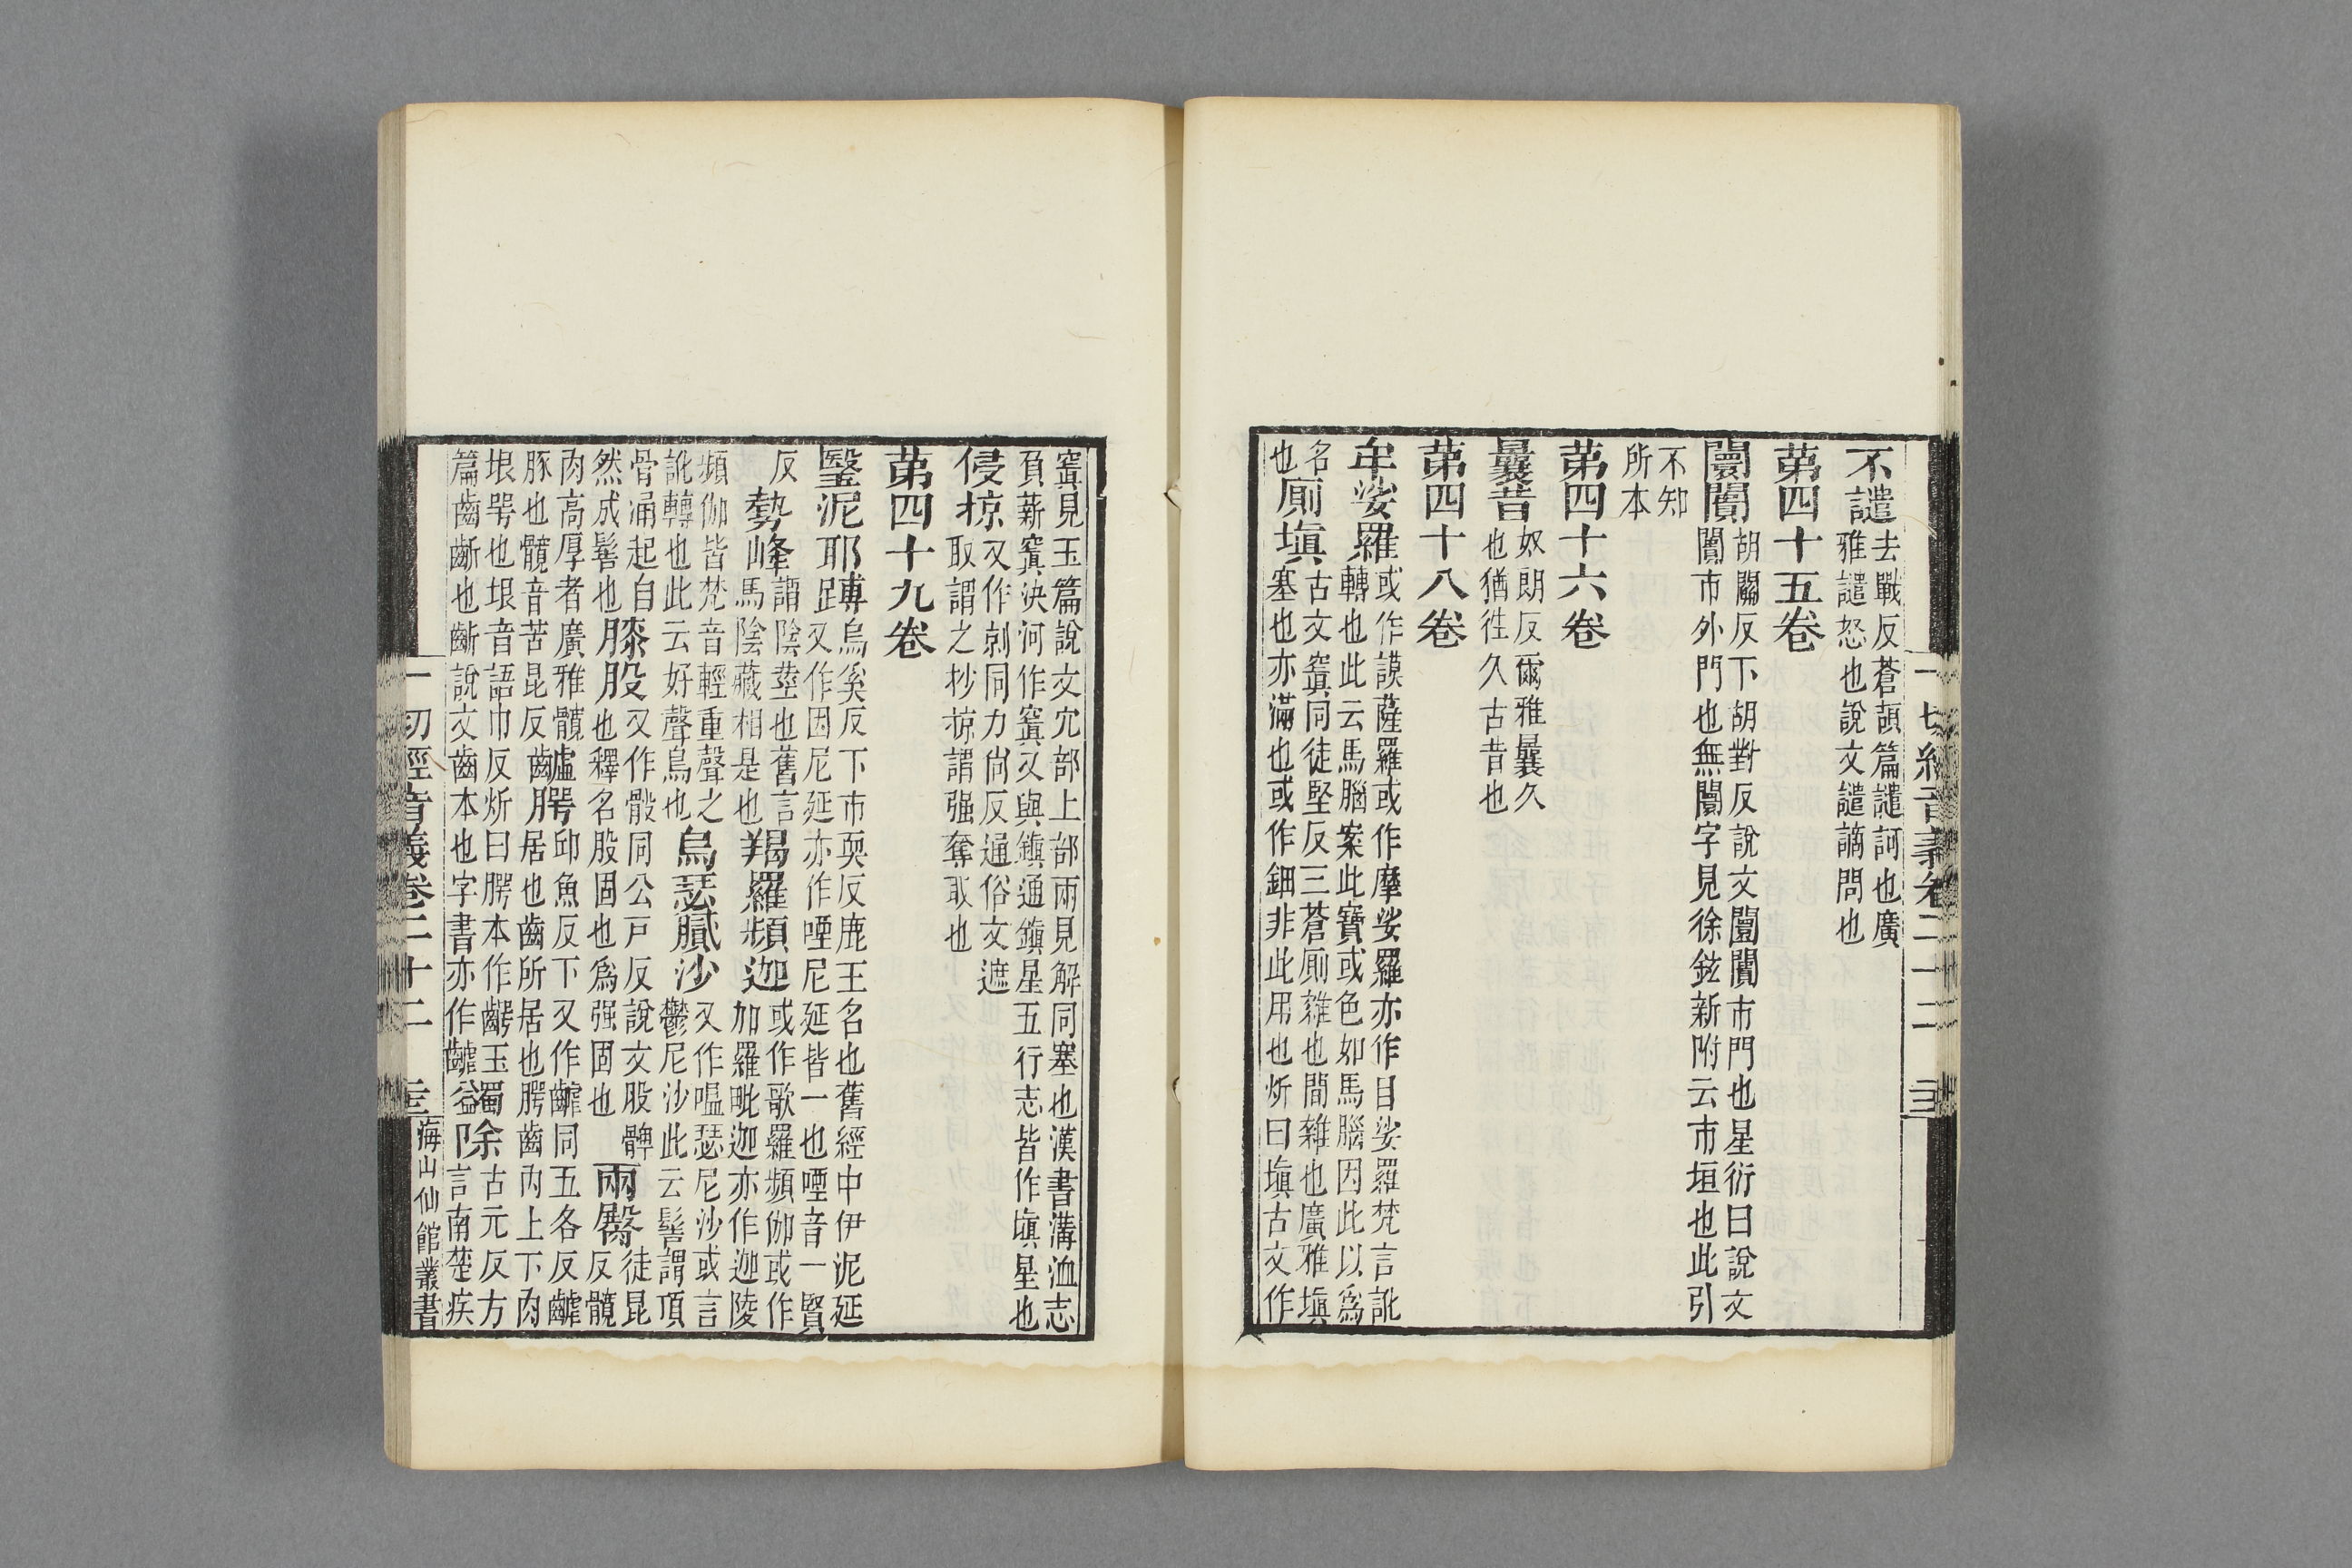 不譴去戰反蒼頡篇譴訶也廣
雅譴怒也說文譴謫問也
第四十五卷
闤闠胡關反下胡對反說文闤闠市門也星衍曰說文
闠市外門也無闤字見徐鉉新附云市垣也此引
不知
所本
第四十六卷
曩昔奴朗反爾雅曩久
也猶徃久古昔也
第四十八卷
牟娑羅或作謨薩羅或作摩娑羅亦作目娑羅梵言訛
轉也此云馬腦案此寶或色如馬腦因此以爲
名
也廁塡古文窴同徒堅反三蒼廁雜也間雜也廣雅塡
塞也亦滿也或作鈿非此用也炘曰塡古文作
窴見玉篇說文穴部上部兩見解同塞也漢書溝洫志
負薪窴決河作窴又與鎭通鎭星五行志皆作塡星也
侵掠又作剠同力尙反通俗文遮
取謂之抄掠謂强奪取也
第四十九卷
瑿泥耶䏝烏奚反下市耎反鹿王名也舊經中伊泥延
𨁟又作因尼延亦作哩尼延皆一也哩音一賢
反
勢峰謂陰莖也舊言
馬陰藏相是也羯羅頻迦或作歌羅頻伽或作
加羅毗迦亦作迦陵
頻伽皆梵音輕重聲之
訛轉也此云好聲鳥也烏瑟膩沙又作嗢瑟尼沙或言
鬱尼沙此云髻謂頂
骨涌起自
然成髻也膝股又作骰同公戸反說文股髀
也釋名股固也爲强固也兩臋徒昆
反髖
肉高厚者廣雅髖
豚也髖音苦昆反齒齶邱魚反下又作𪘒同五各反
居也齒所居也腭齒內上下肉
垠咢也垠音語巾反炘曰腭本作齶玉
篇齒齗也齗說文齒本也字書亦作蠲除古元反方
言南楚疾
一切經音義卷二十二
海山仙館叢書